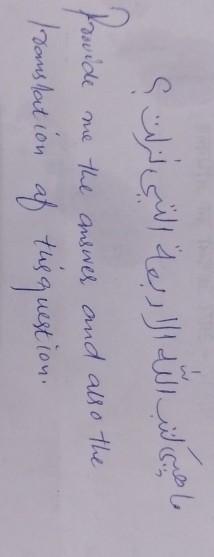 ما هي كتب اللّٰه الاربعة التي نزلت ؟
Provide me the answer and also the
translation of this question.